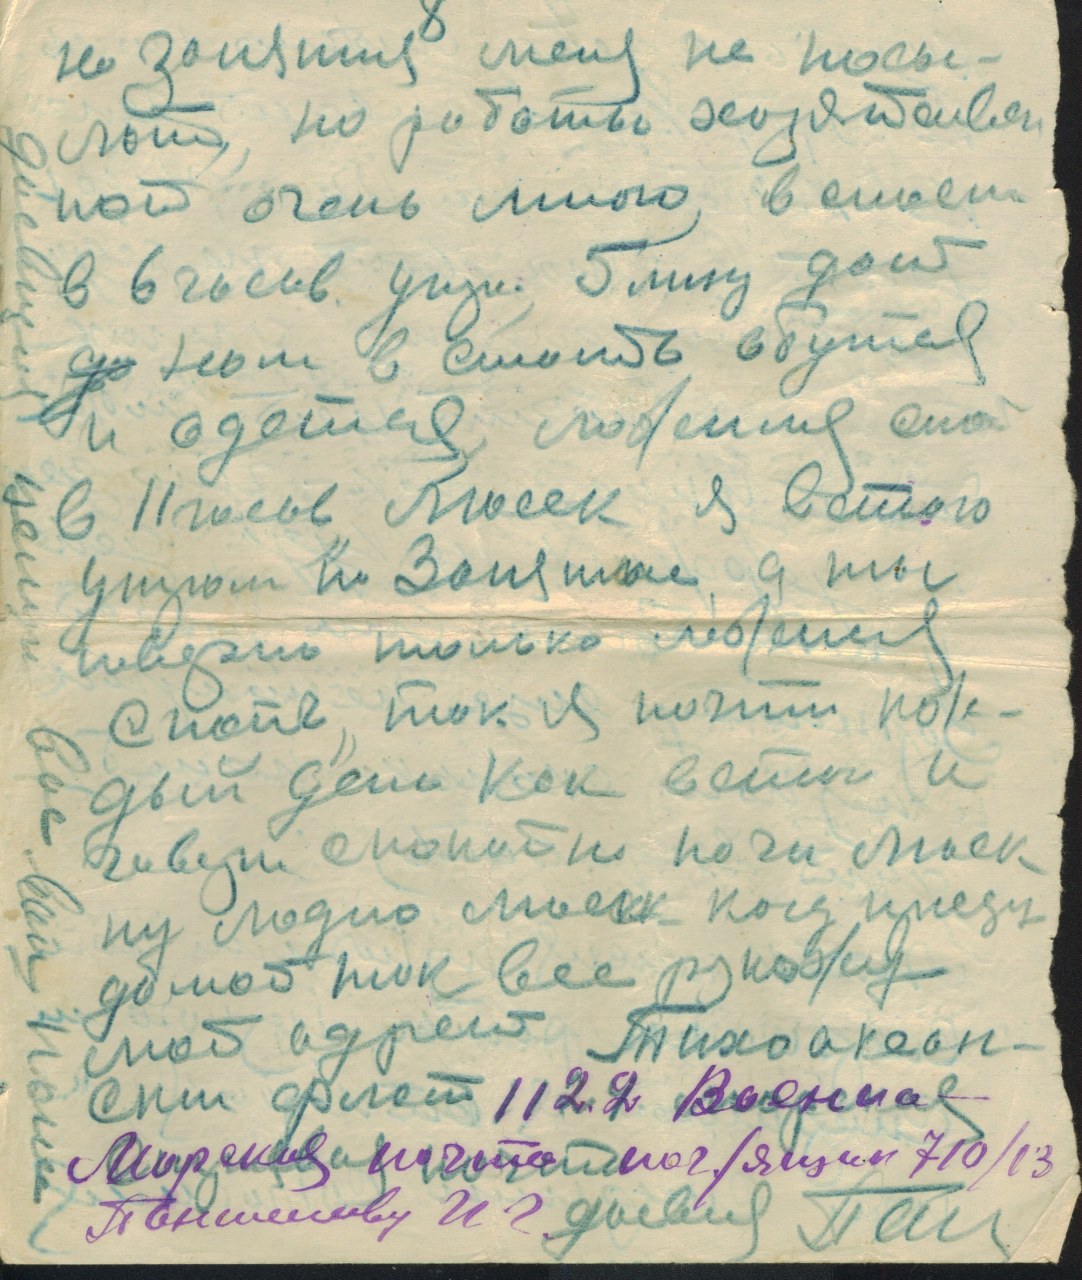 8
на занятия меня не посы-
лают, но работы хозяйствен
ной очень много, встаем
в 6 часов утра. 5 минут дают
нам встать обутся
и одется, ложимся спа
в 11 часов Люсек я встаю
утром на Занятие, а ты
наверно только ложишся
спать, так я почти каж-
дый день как встаю и
говорю спокойно ночи Люсек
ну ладно Люсек когда приеду
домой так все раскажу
мой адрест Тихоокеан-
ски флот 1122 Военна
Морская почта поч/ящик 710/13
И Г. досвид
целую вас ваш